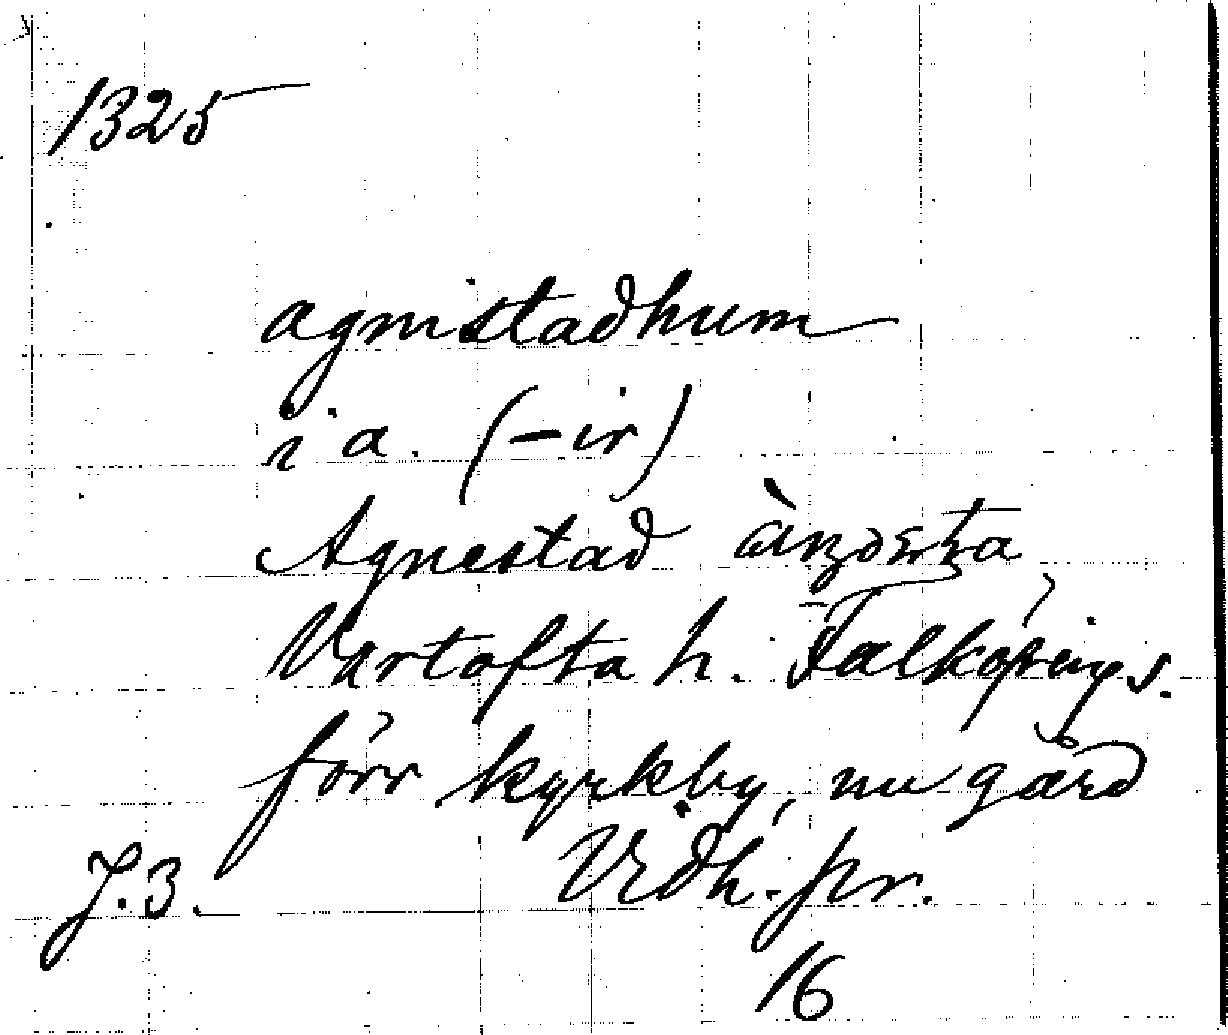 1325
agnistadhum
i a. (-ir)
Agnestad
Vartofta h. Falköpings.
förr kyrkby, nu gård
J. 3. Vidh. pr.
16